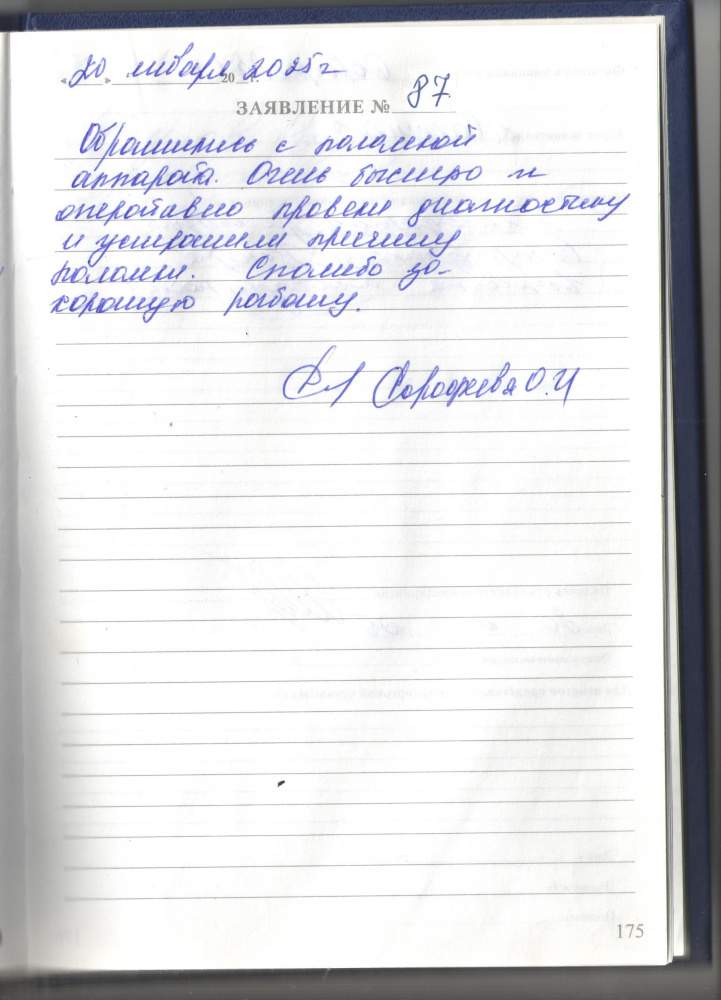 «20» января 20 2025 г
ЗАЯВЛЕНИЕ № 87
Обратились с поломкой
аппарата. Очень быстро и
оперативно провели диагностику
и устранили причину
поломки. Спасибо за
хорошую работу.
О.И
175